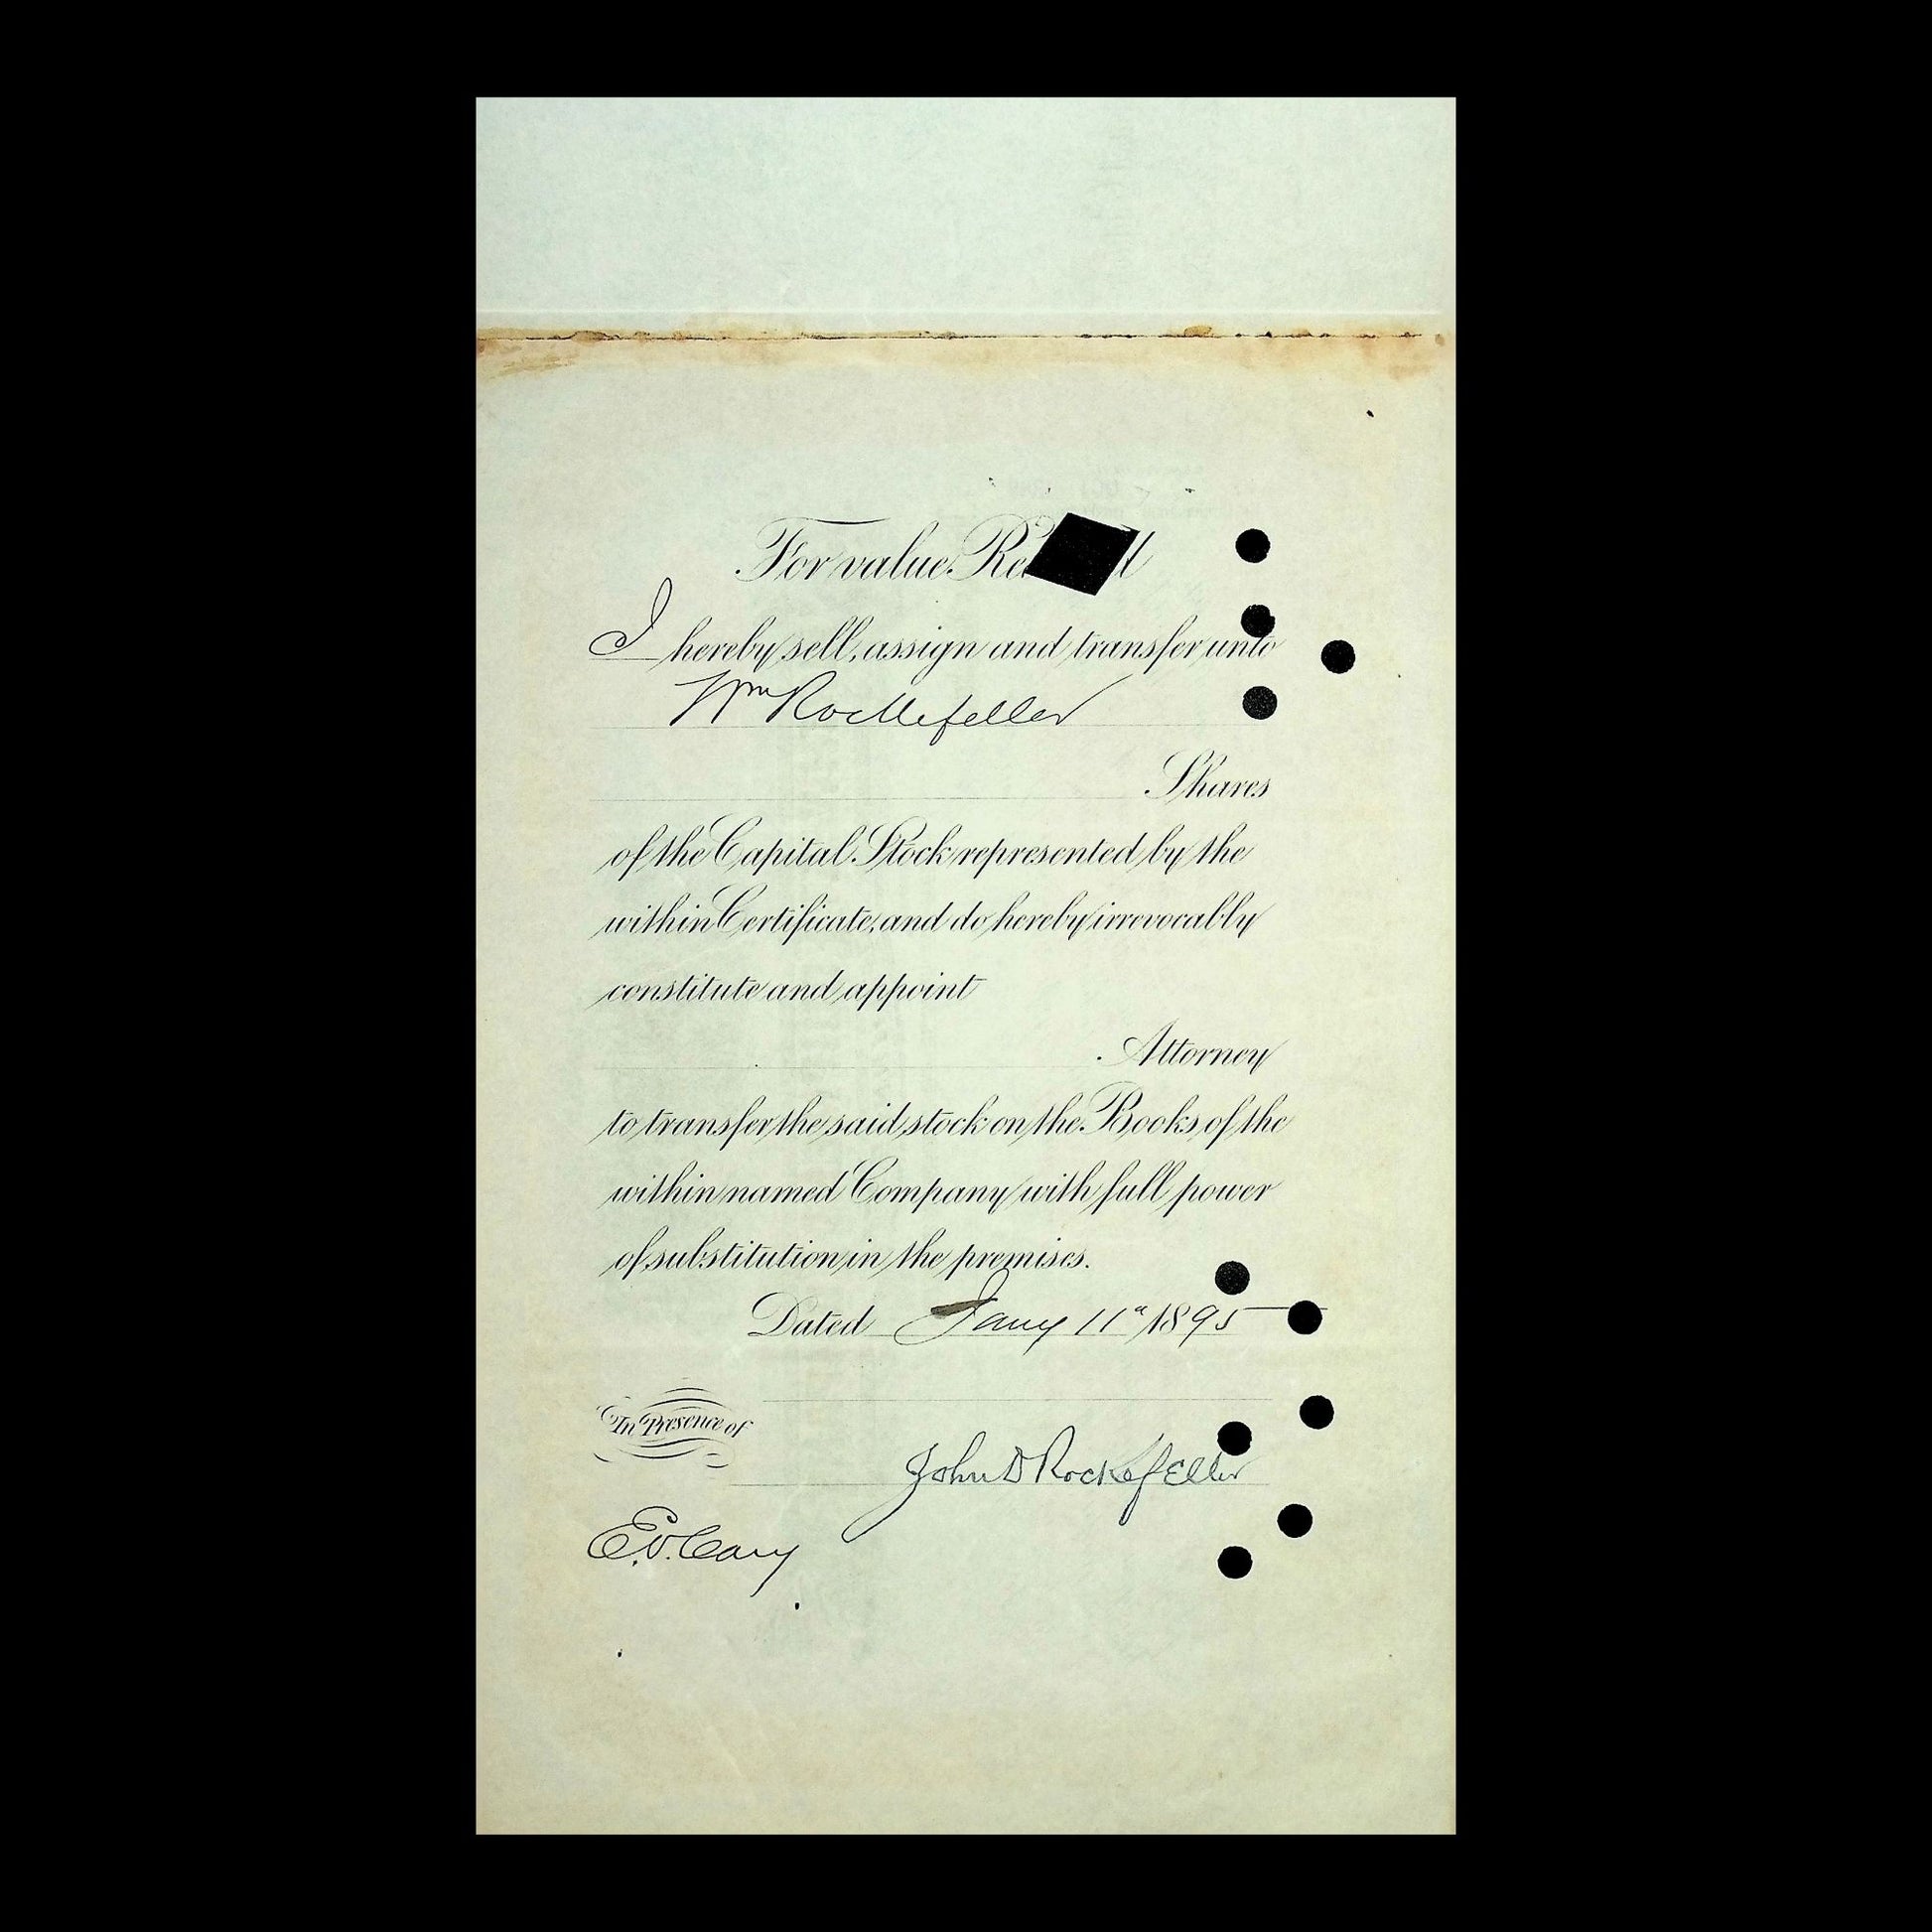 For value Re d
I hereby sell, assign and transfer unto
Wm Rockefeller
Shares
of the Capital Stock represented by the
within Certificate, and do hereby irrevocably
constitute and appoint
Attorney
to transfer the said stock on the Books of the
within named Company with full power
of substitution in the premises.
Dated Jany 11" 1895
In Presence of
John D Rockefeller
E.V. Cary